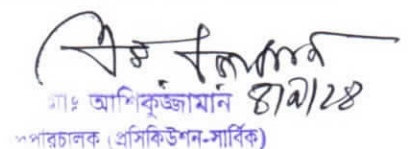 মোঃ আশিকুজ্জামান ৪/৯/২৪
পরিচালক (প্রসিকিউশন-সার্বিক)